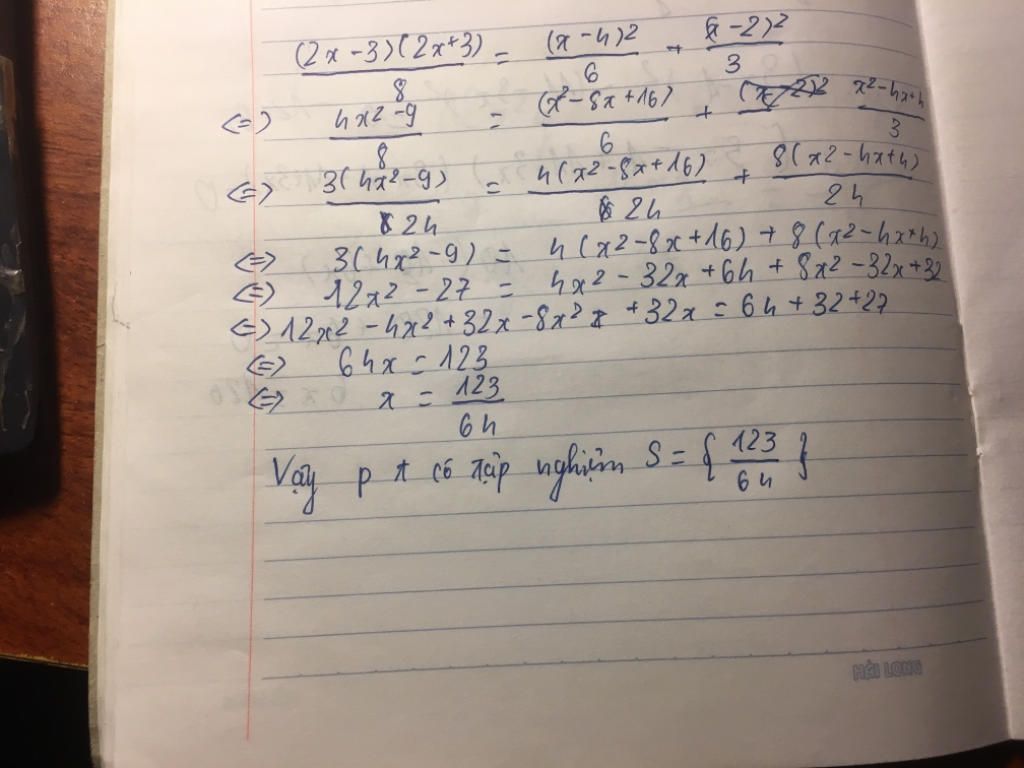 (2x-3)(2x+3)/8 = (x-4)²/6 + (x-2)²/3
<=> 4x²-9/8 = (x²-8x+16)/6 + x²-4x+4/3
<=> 3(4x²-9)/24 = 4(x²-8x+16)/24 + 8(x²-4x+4)/24
<=> 3(4x²-9) = 4(x²-8x+16) + 8(x²-4x+4)
<=> 12x² - 27 = 4x² - 32x + 64 + 8x² - 32x + 32
<=> 12x² - 4x² + 32x - 8x² + 32x = 64 + 32 + 27
<=> 64x = 123
<=> x = 123/64
Vậy pt có tập nghiệm S = {123/64}
HẢI LONG